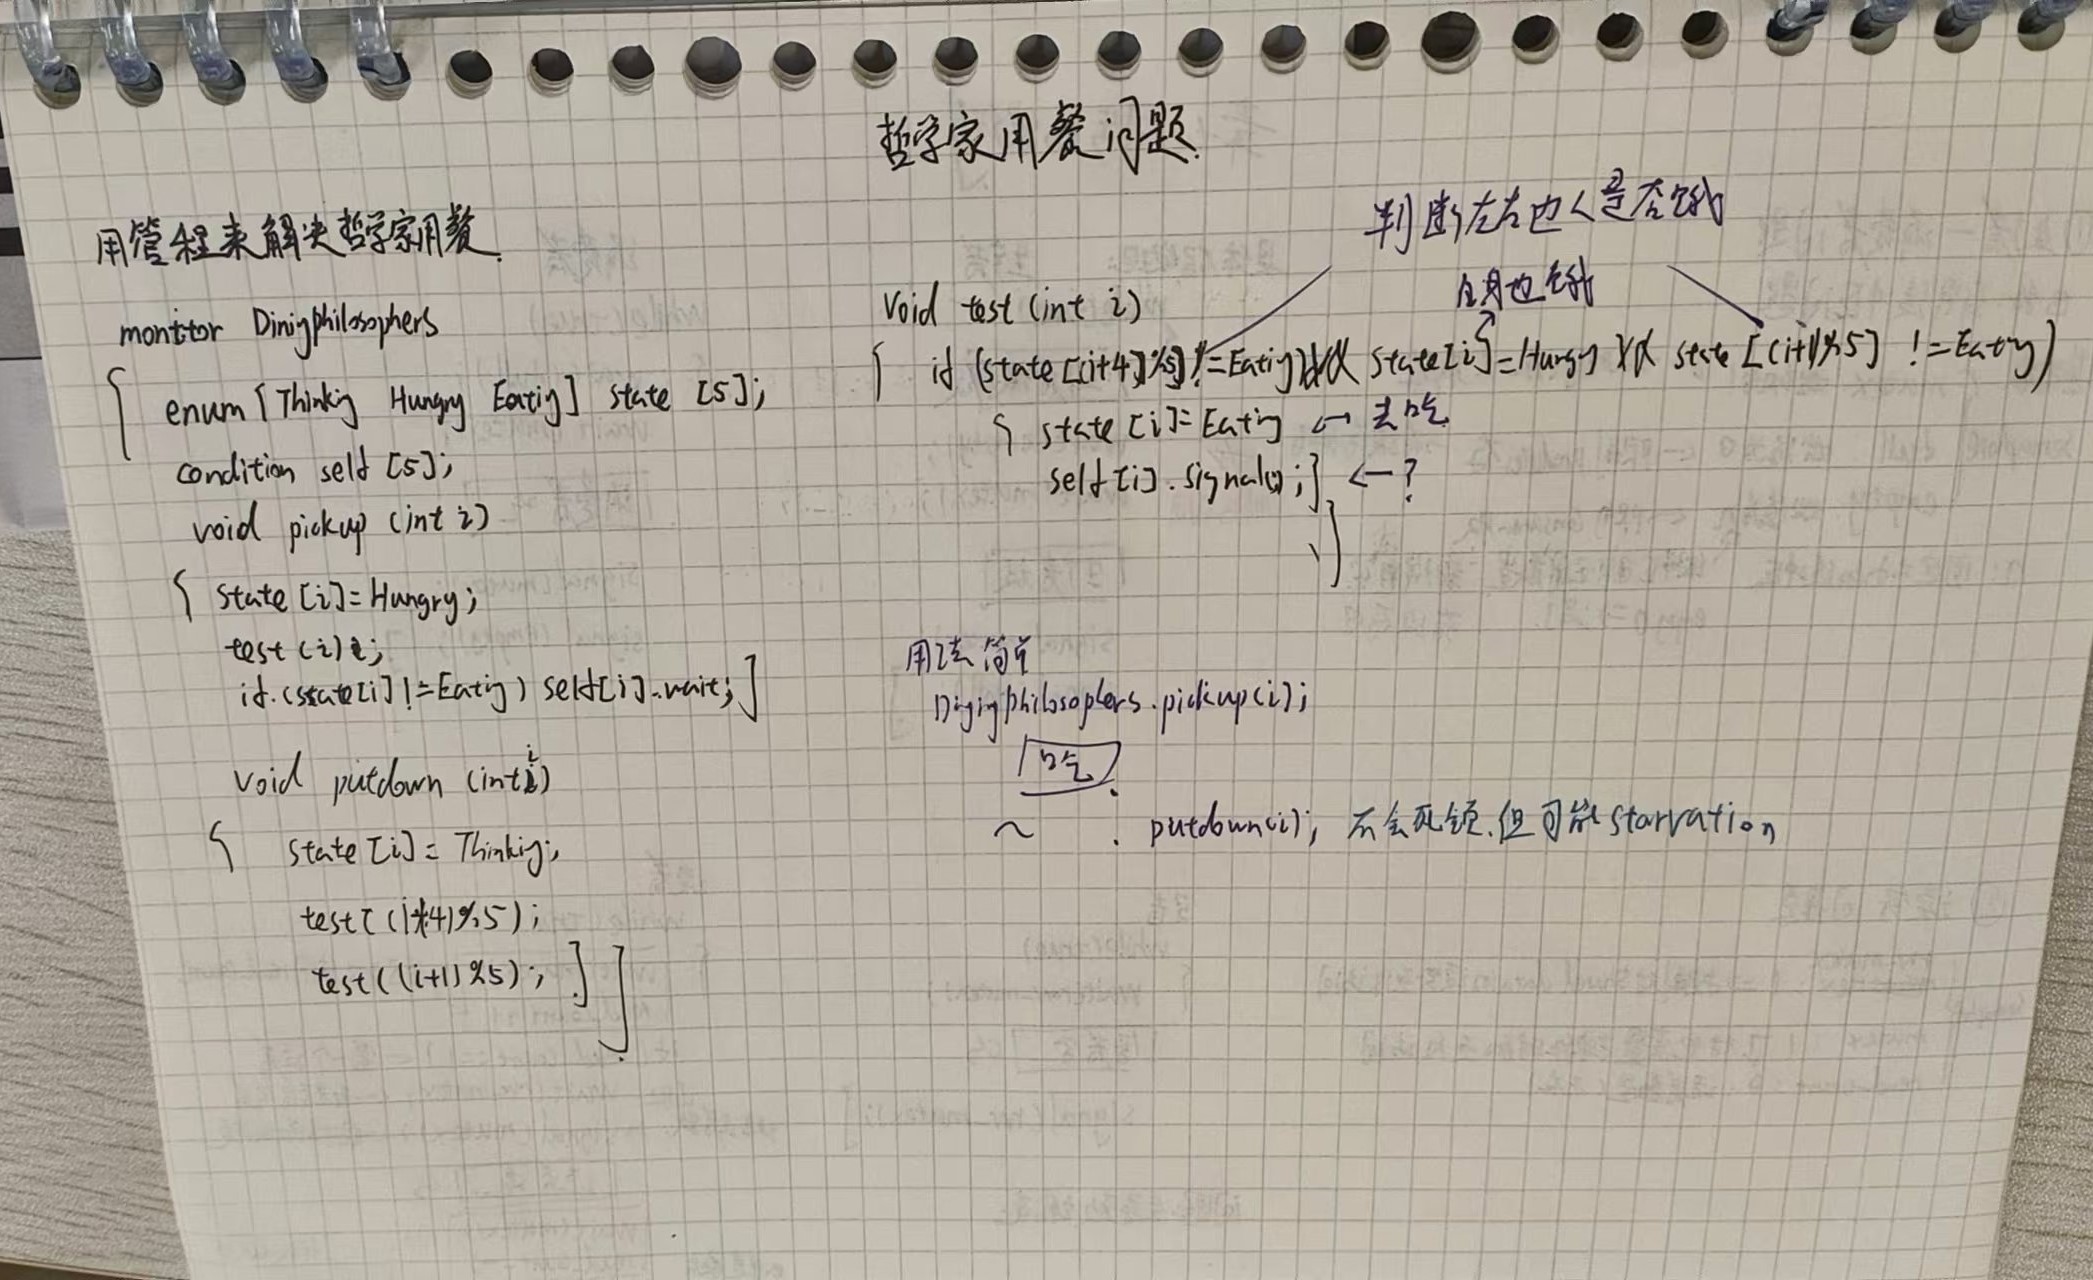 哲学家用餐问题.
用管程来解决哲学家用餐.
monitor Diniyphilosophers
{ enum [Thinkiy Hungry Eatiy] state [5];
condition self [5];
void pickup (int i)
{ state [i]=Hungry;
test (i);
if.(state[i]!=Eatiy) self[i].wait;}
void putdown (int i)
{ state [i]= Thinkiy;
test((i+4)%5);
test((i+1)%5); } }
判断左右边人是否饿
自身也饿
void test (int i)
{ if (state[(i+4)%5]!=Eatiy)&& state[i]=Hungy && state [(i+1)%5] !=Eatiy)
{ state [i]=Eatiy ←去吃
self[i].signal(); } ←?
}
用法简单
Diyiyphilosophers.pickup(i);
吃.
~ . putdown(i); 不会死锁.但可能starvation